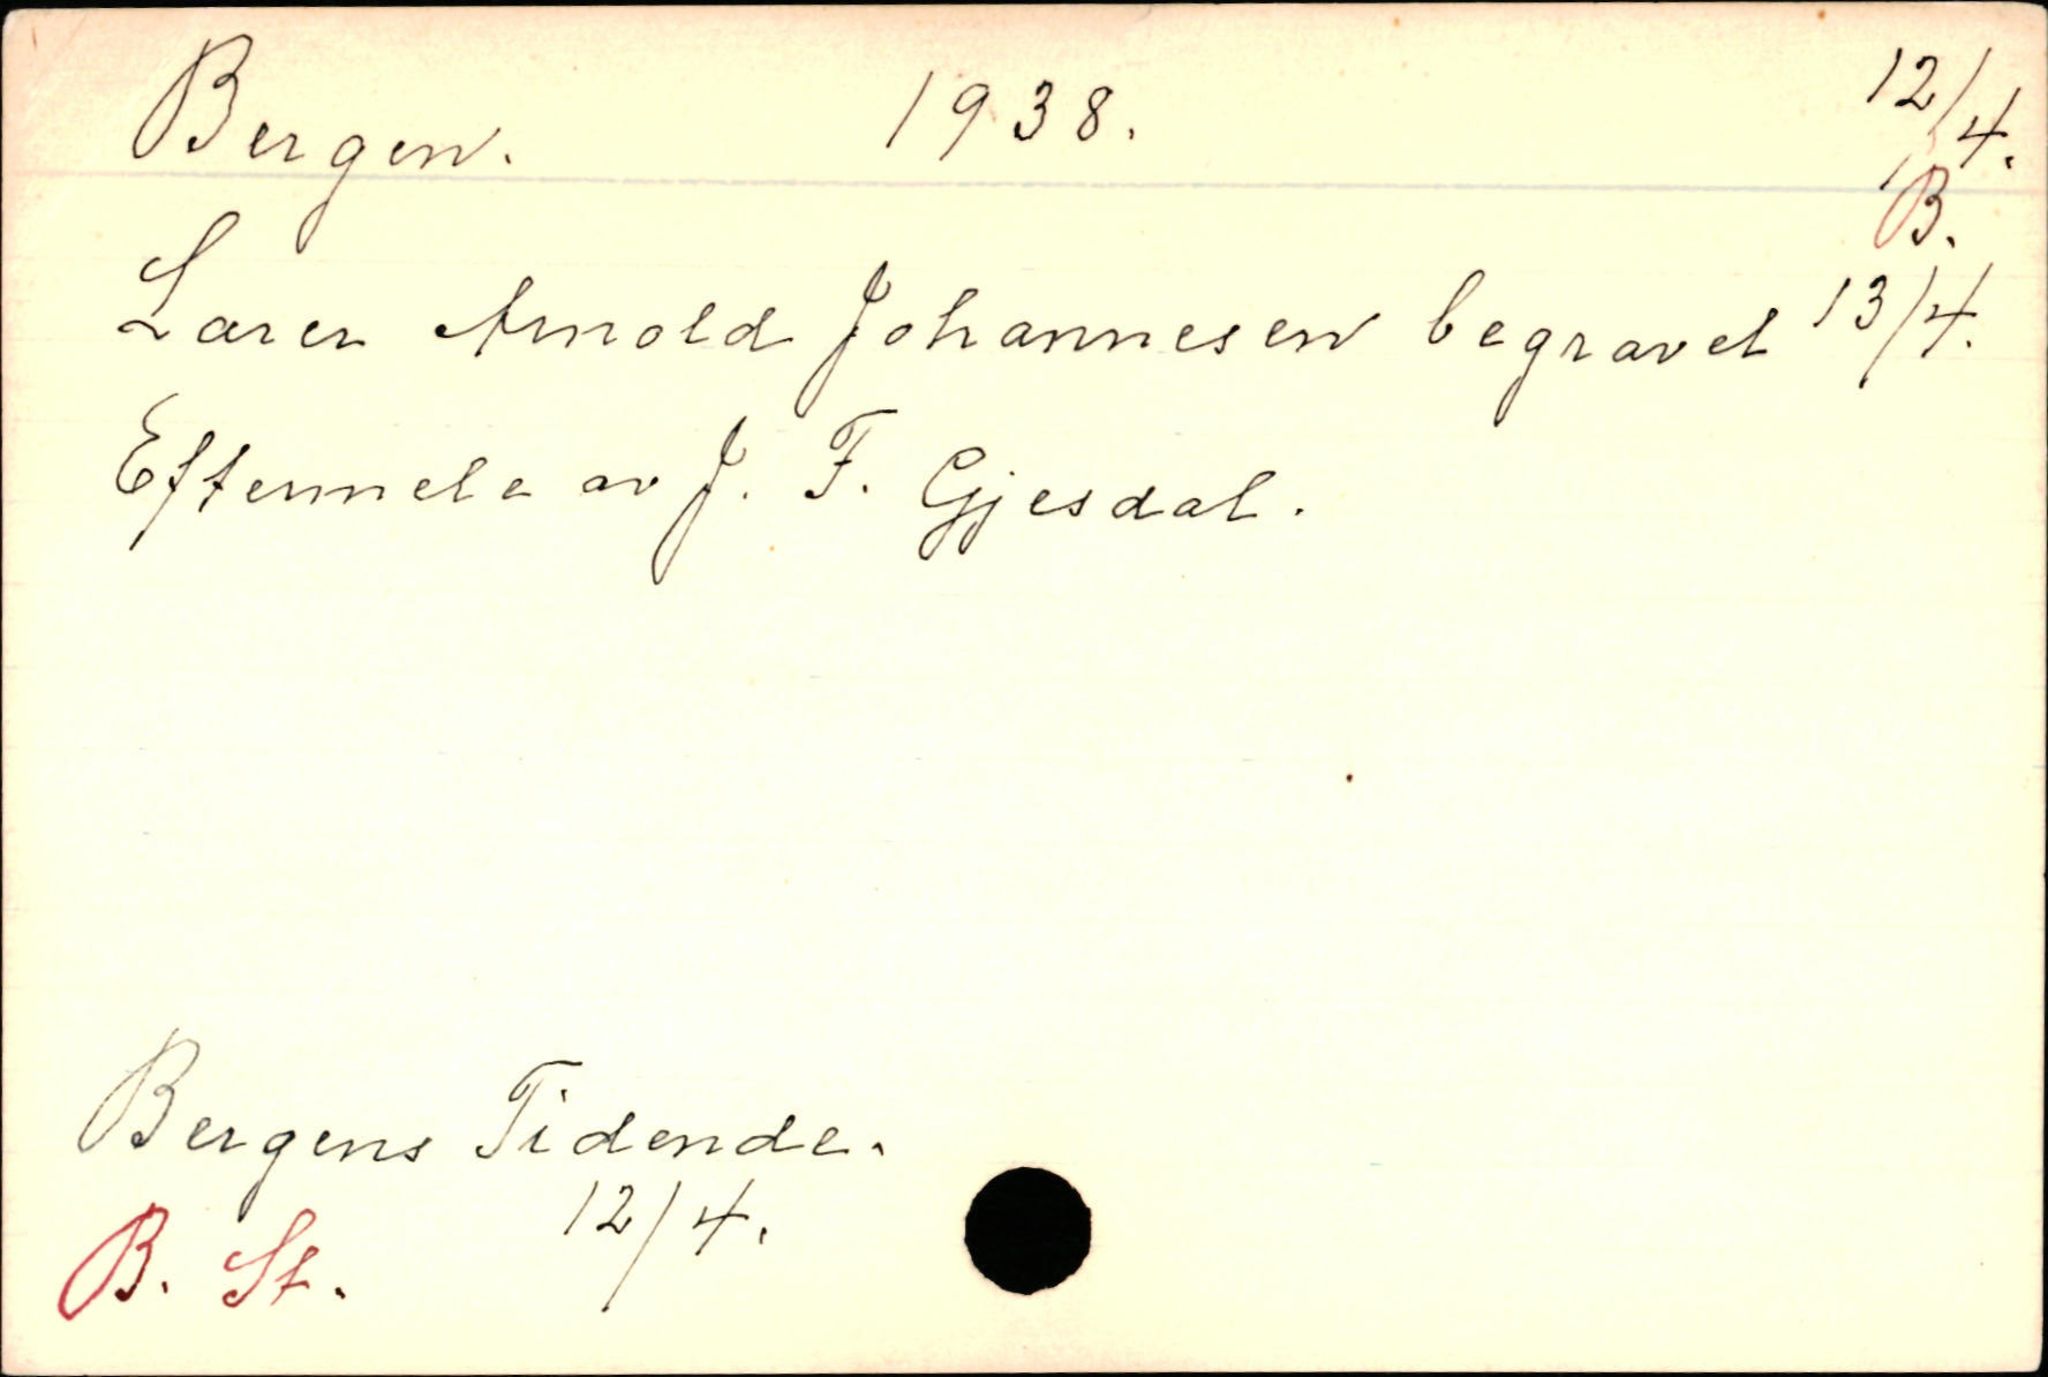 Bergen. 1938. 12/4.
B.
Lærer Arnold Johannesen begravet 13/4.
Eftermele av J. F. Gjesdal.
Bergens Tidende.
12/4.
B. St.